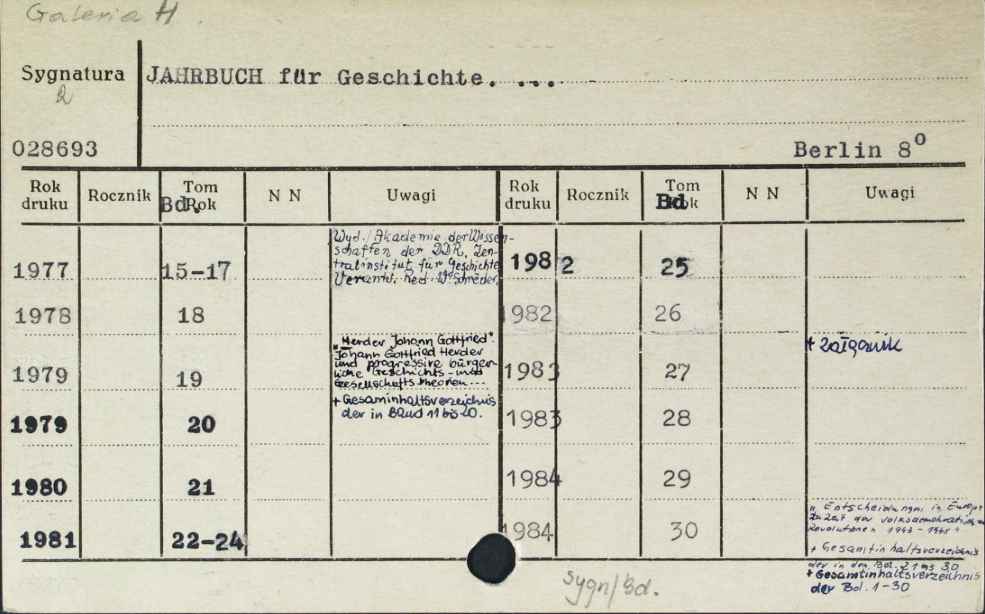 Galeria H.
Sygnatura
JAHRBUCH für Geschichte. ...
R
028693
Berlin 8⁰
Rok druku Rocznik Tom Rok Bd. N N Uwagi Rok druku Rocznik Tom Rok Bd N N Uwagi
Wyd. Akademie der Wissen-
schaften der DDR, Zen-
tralinstitut für Geschichte
Verantw. Red. W. Schröder.
1977 15-17
1982 25
1978 18
1982 26
"Herder Johann Gottfried".
Johann Gottfried Herder
und progressive bürger-
liche Geschichts- und
Gesellschaftstheorien...
1979 19
1983 27
+ załącznik
+ Gesaminhaltsverzeichnis
der in Band 11 bis 20.
1979 20
1983 28
1980 21
1984 29
1981 22-24
1984 30
"Entscheidungen in Europa
zu Zeit der volksdemokratischen
Revolutionen 1943-
+ Gesamtinhaltsverzeichnis
der in den Bd. 21 bis 30
+ Gesamtinhaltsverzeichnis
der Bd. 1-30
sygn/Bd.